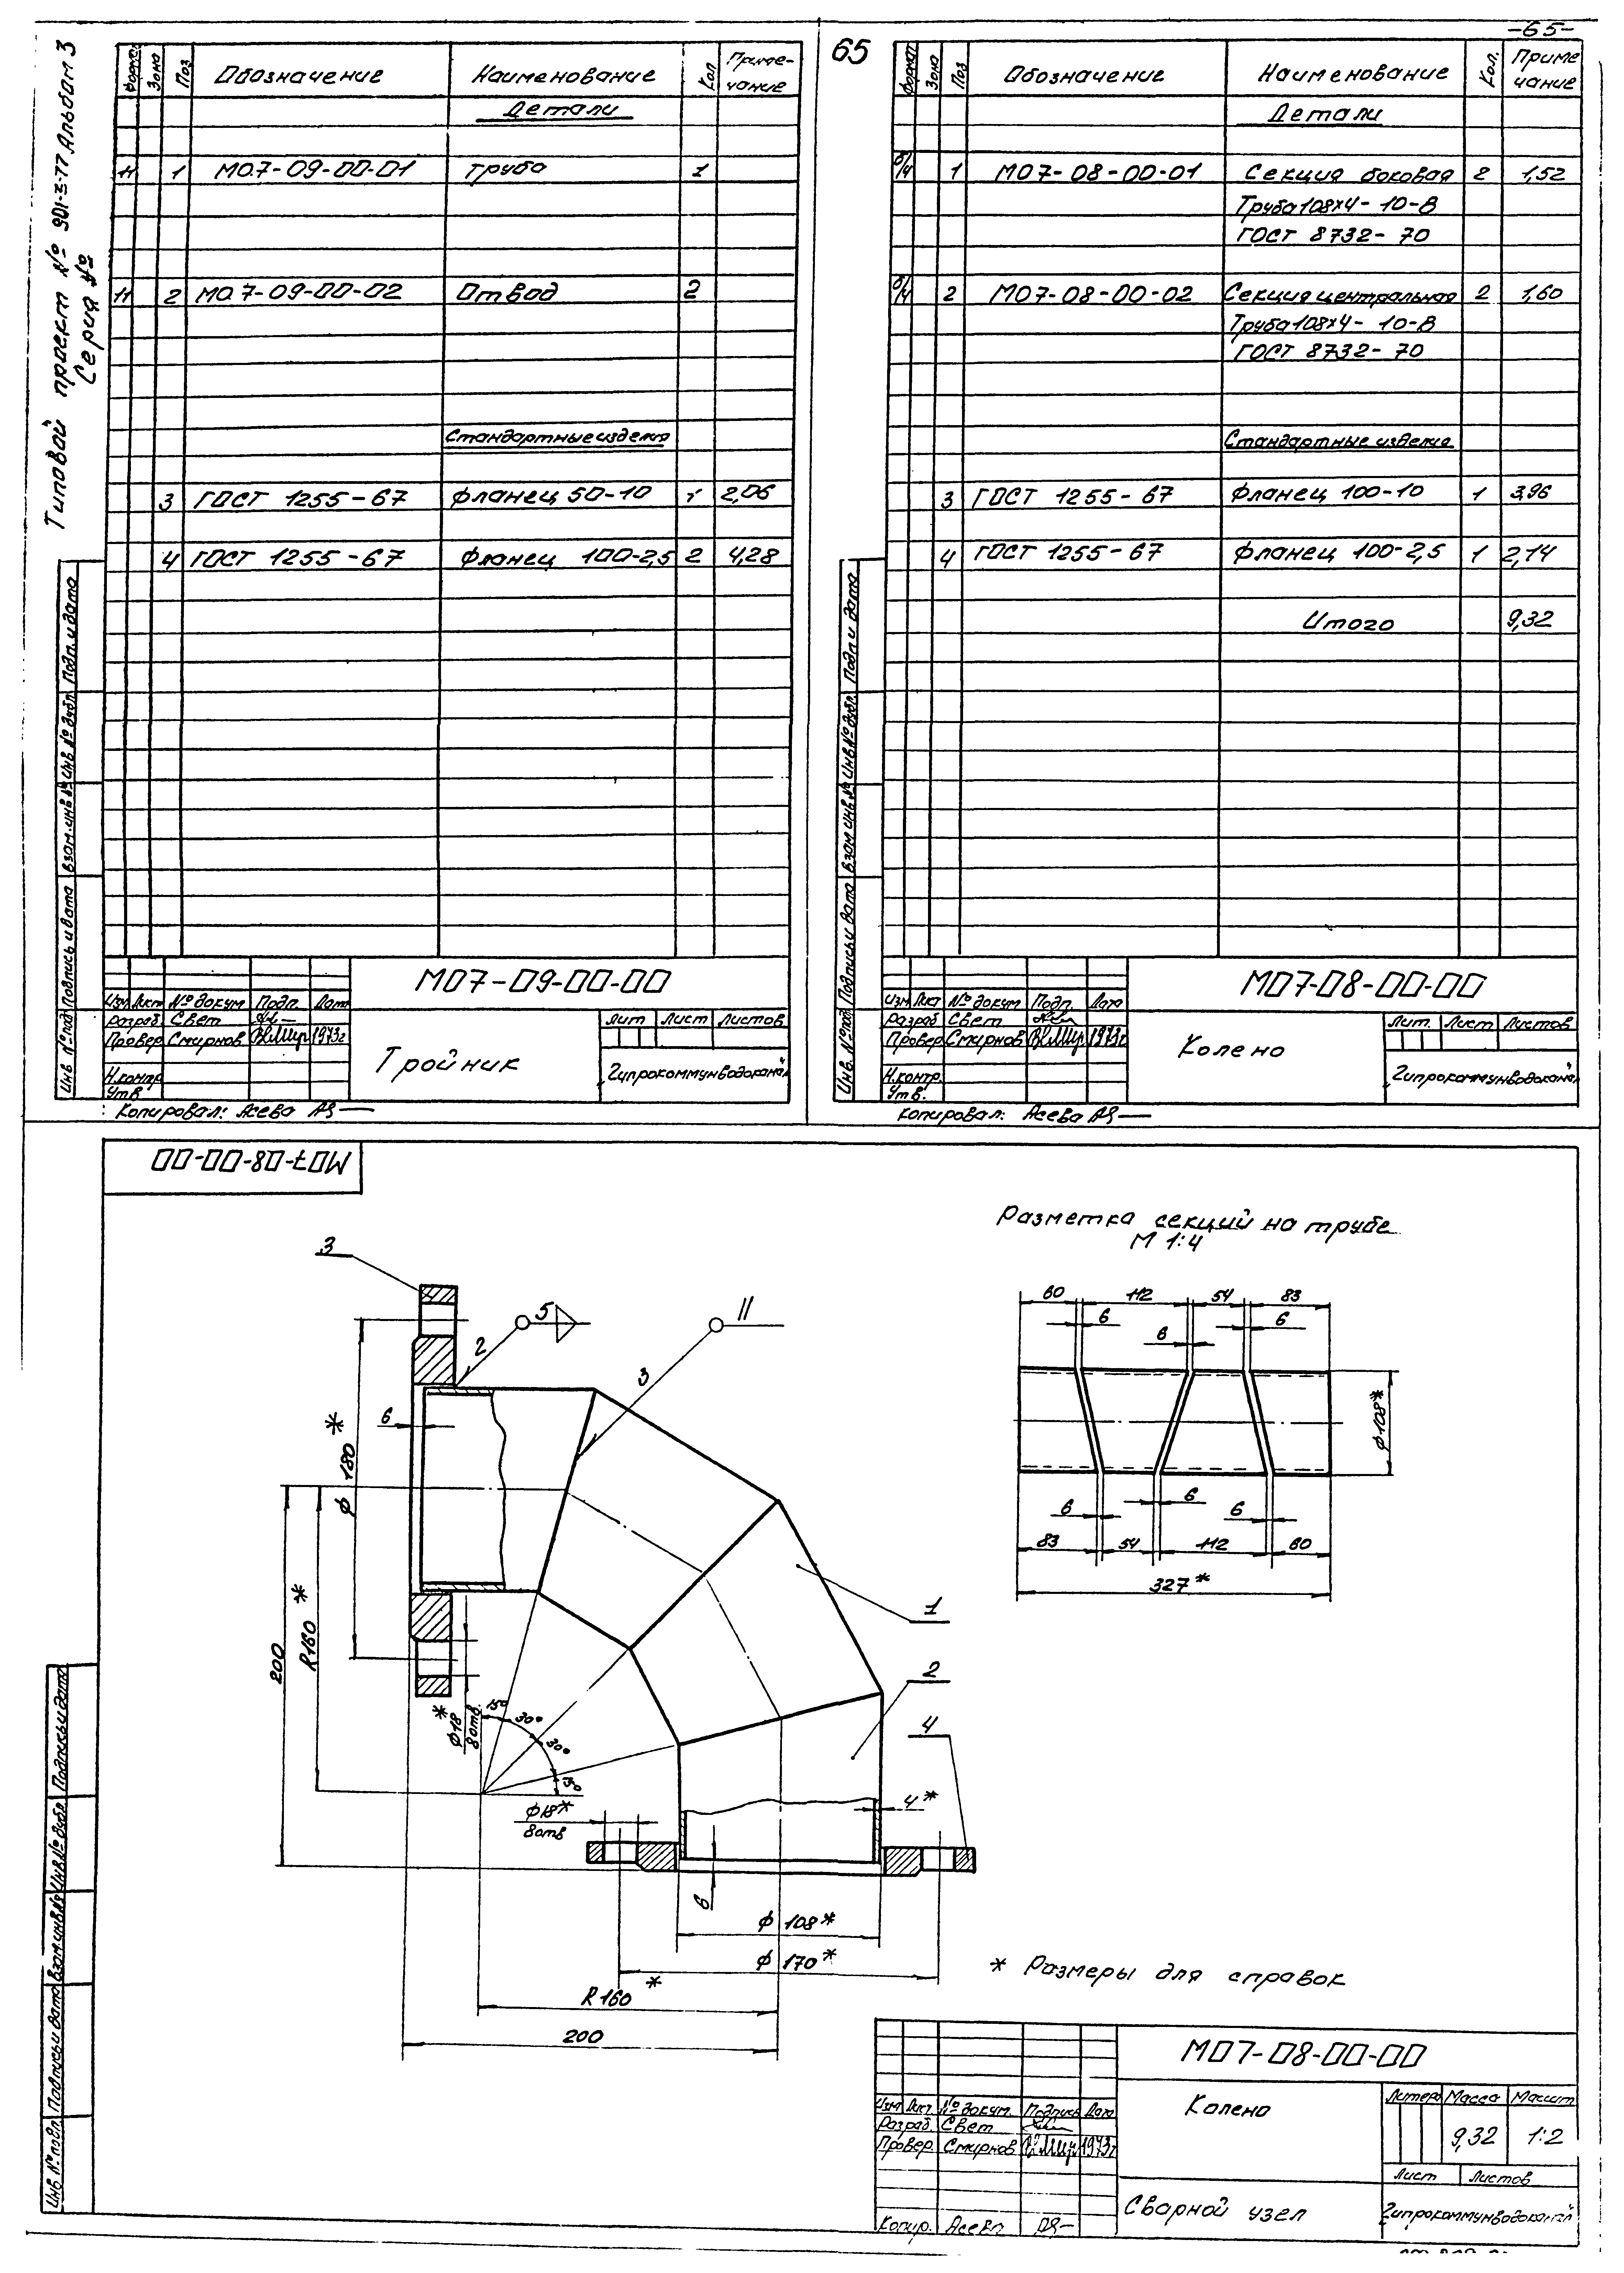 -65-
65
Типовой проект № 901-3-77 Альбом 3
Серия №
Формат Зона Поз Обозначение Наименование Кол Приме-
чание
Детали
11 1 М07-09-00-01 Труба 1
11 2 М07-09-00-02 Отвод 2
Стандартные изделия
3 ГОСТ 1255-67 Фланец 50-10 1 2,06
4 ГОСТ 1255-67 Фланец 100-2,5 2 4,28
М07-09-00-00
Изм Лист № докум Подп. Дата
Разраб. Свет
Провер Смирнов 1973г
Н.контр
Утв
Тройник
Лит Лист Листов
Гипрокоммунводоканал
Копировал: Асева
Инв. № под Подпись и дата Взам.инв № Инв № дубл. Подп. и дата
Формат Зона Поз Обозначение Наименование Кол. Приме
чание
Детали
б/ч 1 М07-08-00-01 Секция боковая 2 1,52
Труба 108×4-10-В
ГОСТ 8732-70
б/ч 2 М07-08-00-02 Секция центральная 2 1,60
Труба 108×4-10-В
ГОСТ 8732-70
Стандартные изделия
3 ГОСТ 1255-67 Фланец 100-10 1 3,96
4 ГОСТ 1255-67 Фланец 100-2,5 1 2,14
Итого 9,32
М07-08-00-00
Изм Лист № докум Подп. Дата
Разраб Свет
Провер Смирнов 1973г
Н.контр.
Утв.
Колено
Лит. Лист Листов
Гипрокоммунводоканал
Копировал: Асева
Инв. № под Подпись и дата Взам инв № Инв № дубл. Подп и дата
М07-08-00-00
Разметка секций на трубе
М 1:4
60 112 54 83
6 6 6
ф108*
6 6 6
83 54 112 60
327*
3
5
11
2
3
6
ф 180*
R160*
200
1
2
4
*ф18
8 отв.
15° 30° 30° 15°
ф18*
8 отв
4*
6
ф 108*
ф 170*
R 160*
200
* Размеры для справок
М07-08-00-00
Колено
Литера Масса Масшт
9,32 1:2
Лист Листов
Изм Лист. № докум. Подпись Дата
Разраб. Свет
Провер. Смирнов 1973г
Копир. Асева
Сварной узел
Гипрокоммунводоканал
Инв № подл. Подпись и дата Взам.инв.№ Инв.№ дубл. Подпись и дата